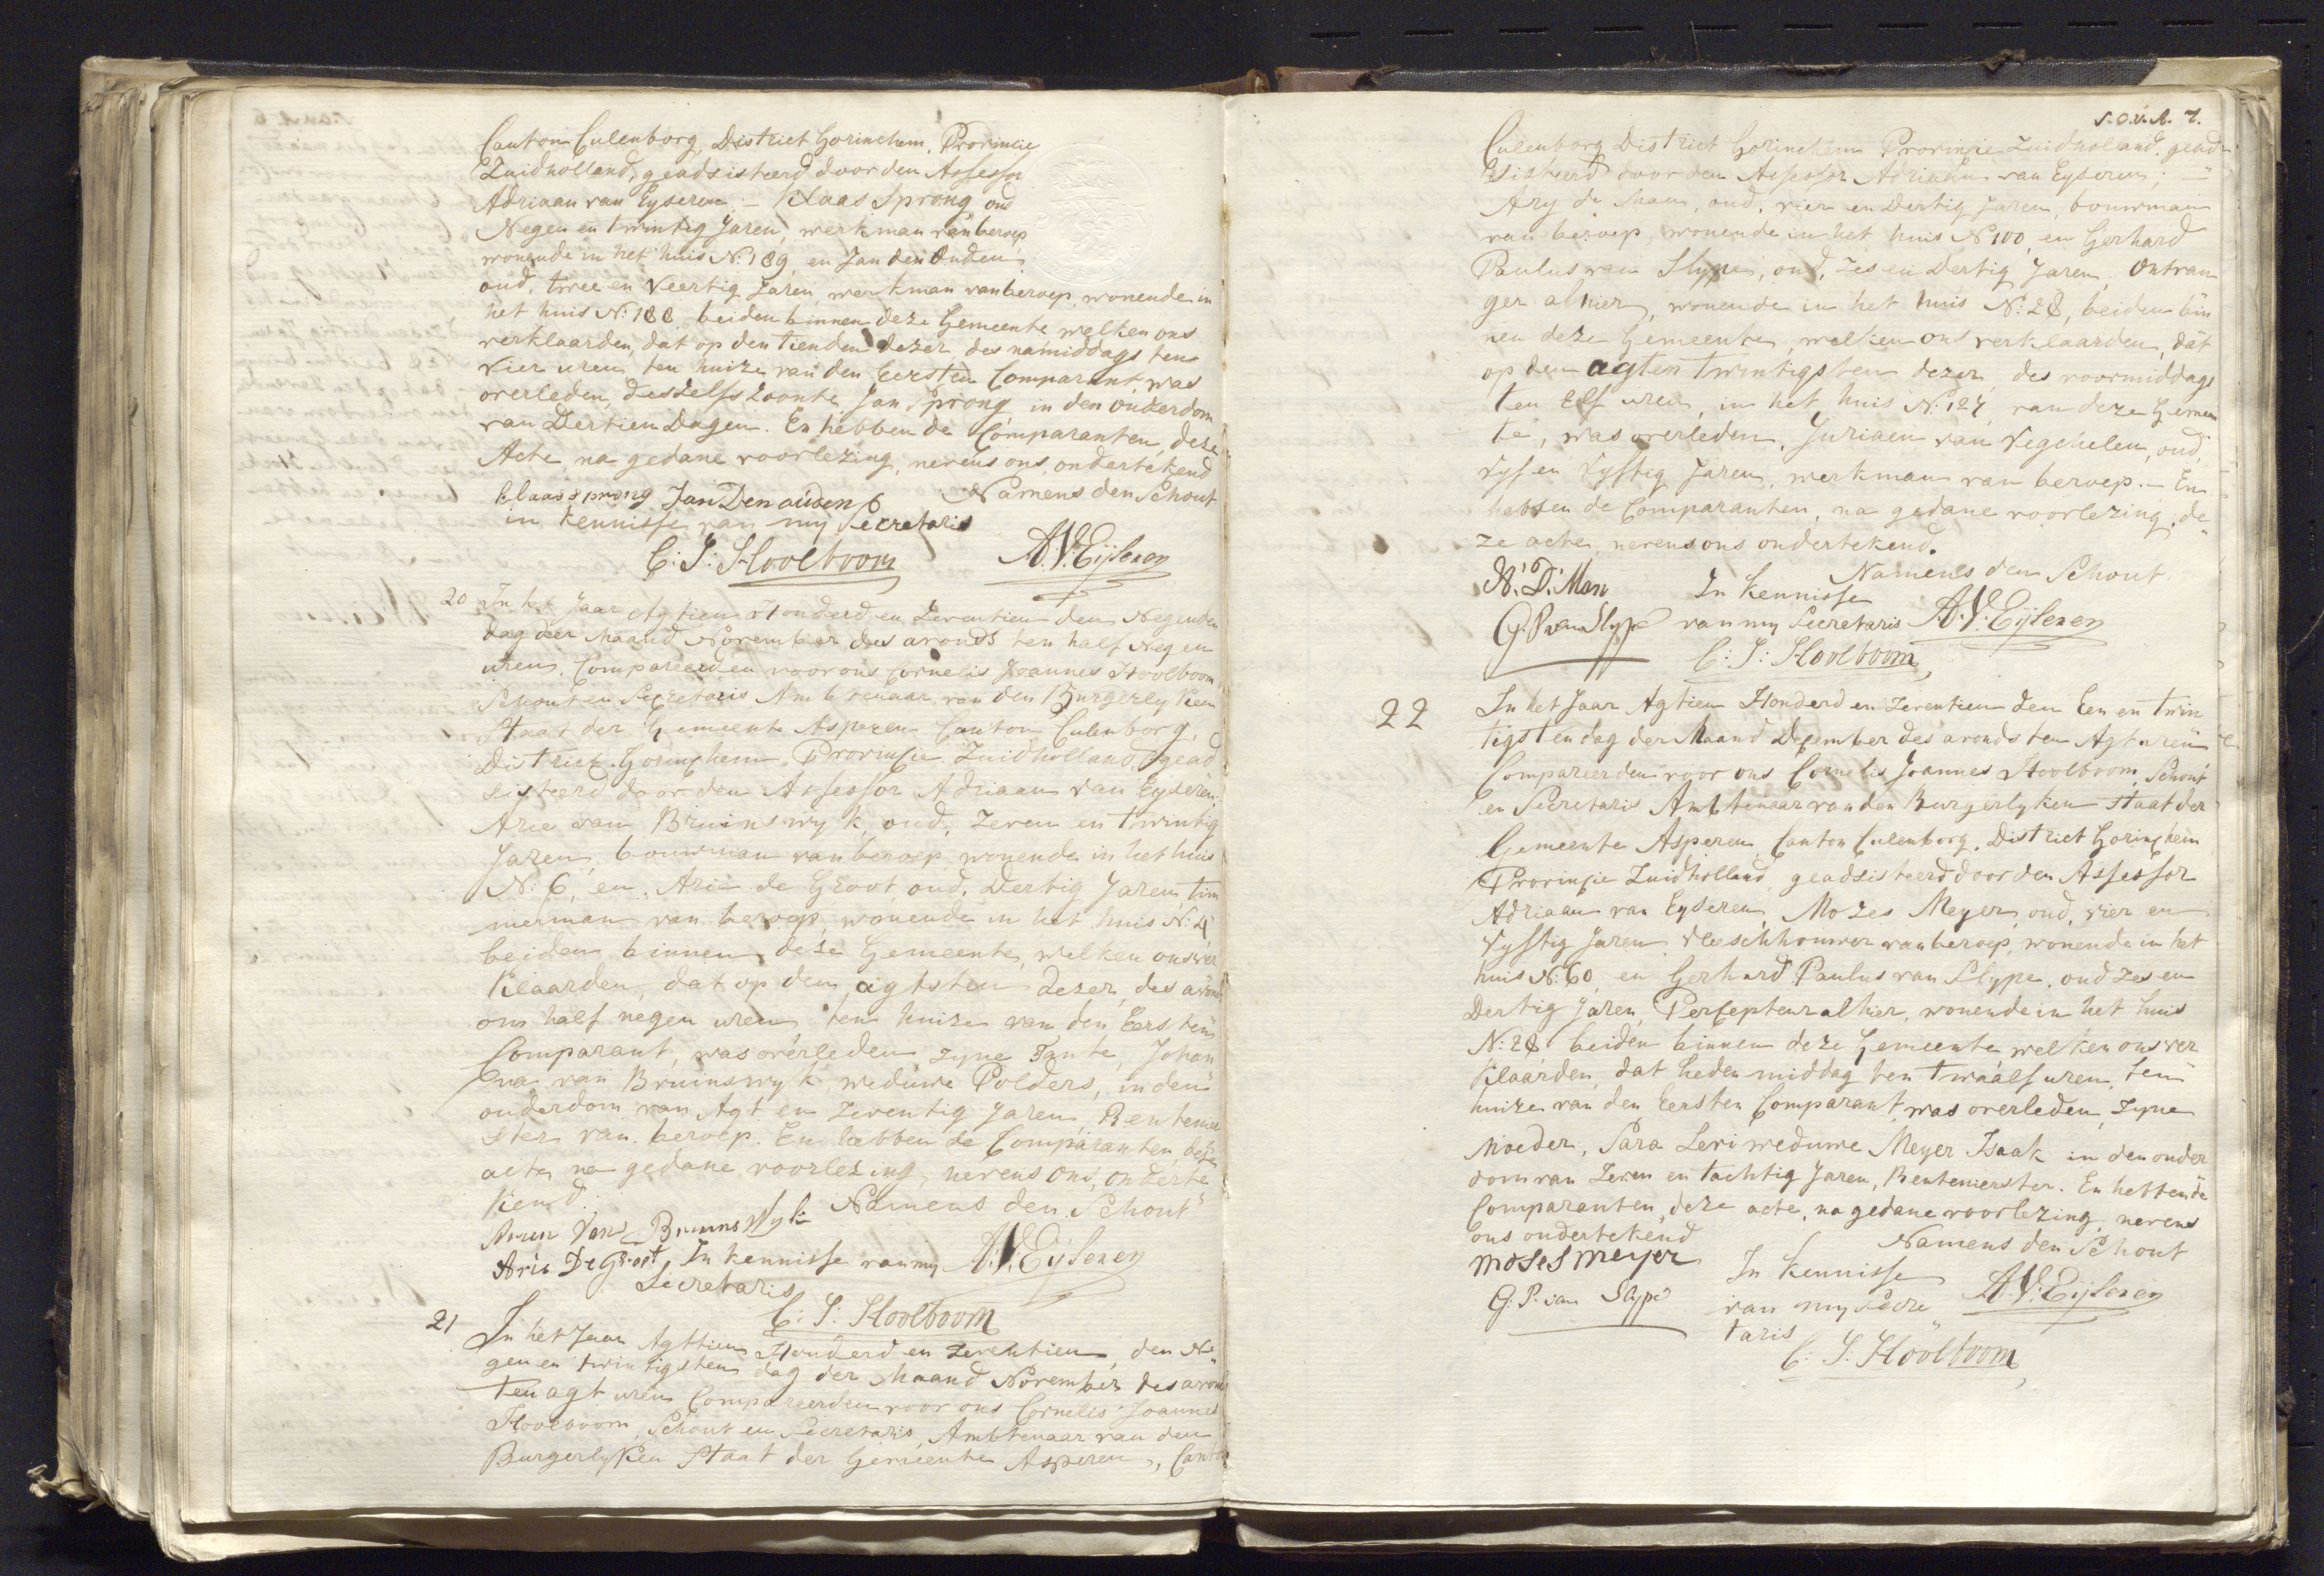 Canton Culenborg, District Gorinchem, Provincie
Zuidholland, geadsisteerd door den Assessor
Adriaan van Eyseren. - Klaas Sprong oud
Negen en twintig Jaren, werkman van beroep
wonende in het huis N: 189, en Jan den Ouden
oud, twee en Veertig Jaren, werkman van beroep, wonende in
het huis N: 188 beiden binnen deze Gemeente welken ons
verklaarden, dat op den tienden dezer, des namiddags ten
vier uren, ten huize van den Eersten Comparant, was
overleden, deszelfs Zoontje Jan Sprong in den ouderdom
van Dertien Dagen. En hebben de Comparanten, deze
Acte, na gedane voorlezing, nevens ons, ondertekend
klaas sprong Jan Den ouden Namens den Schout
in kennisse van my Secretaris
C: J: Hoolboom A.V. Eijseren
20 In het Jaar Agtien Honderd en Zeventien den Negenden
dag der Maand November des avonds ten half Negen
uren, Compareerden voor ons Cornelis Joannes Hoolboom
Schout en Secretaris Ambtenaar van den Burgerlyken
Staat der Gemeente Asperen Canton Culenborg,
District Gorinchem Provincie Zuidholland, gead
sisteerd door den Assessor Adriaan van Eyseren:
Arie van Bruinswyk, oud, Zeven en twintig
Jaren, bouwman van beroep, wonende in het huis
N: 6, en Arie de Groot oud, Dertig Jaren, tim
merman van beroep, wonende in het huis N: 4
beiden binnen deze Gemeente, welken ons ver
klaarden, dat op den agtsten dezer, des avonds
om half negen uren, ten huize van den Eersten
Comparant, was overleden zyne Tante, Johan
na van Bruinswyk weduwe Polders, in den
ouderdom van Agt en Zeventig Jaren, Rentenier
ster van beroep. En hebben de Comparanten, deze
acte na gedane voorlezing, nevens ons, onderte
kend. Namens den Schout
Van Bruinswyk
Arie De Groot In kennisse van my A.V. Eijseren
Secretaris
C: J: Hoolboom
21 In het Jaar Agttien Honderd en Zeventien, den Ne
gen en twintigsten dag der Maand November des avonds
ten agt uren Compareerden voor ons Cornelis Joannes
Hoolboom, Schout en Secretaris, Ambtenaar van den
Burgerlyken Staat der Gemeente Asperen, Canton
S.O.V.A. 7.
Culenborg District Gorinchem Provincie Zuidholland, gead
sisteerd door den Assessor Adriaan van Eyseren; -
Ary de Man, oud, vier en Dertig Jaren, bouwman
van beroep, wonende in het huis N 100, en Gerhard
Paulus van Slype, oud, Zes en Dertig Jaren, Ontvan
ger alhier, wonende in het huis N: 28, beiden bin
nen deze Gemeente, welken ons verklaarden, dat
op den agten twintigsten dezer, des voormiddags
ten Elf uren, in het huis N: 127, van deze Gemeen
te, was overleden, Juriaen van Vegchelen, oud,
Vyf en Vyftig Jaren, werkman van beroep. - En
hebben de Comparanten, na gedane voorlezing, de
ze acte, nevens ons ondertekend.
A: D: Man In kennisse Namens den Schout
G. P. van Slype van my Secretaris A.V. Eijseren
C: J: Hoolboom
22 In het Jaar Agtien Honderd en Zeventien den Een en twin
tigsten dag der Maand December des avonds ten Agt uren
Compareerden voor ons Cornelis Joannes Hoolboom, Schout
en Secretaris Ambtenaar van den Burgerlyken Staat der
Gemeente Asperen Canton Culenborg, District Gorinchem
Provincie Zuidholland, geadsisteerd door den Assessor
Adriaan van Eyseren, Mozes Meyer, oud, vier en
Vyftig Jaren Vleeschhouwer van beroep, wonende in het
huis N: 60, en Gerhard Paulus van Slype, oud Zes en
Dertig Jaren, Percepteur alhier, wonende in het huis
N: 28 beiden binnen deze Gemeente welken ons ver
klaarden, dat heden middag ten twaalf uren, ten
huize van den Eersten Comparant, was overleden, Zyne
Moeder, Sara Levi weduwe Meyer Isaak in den ouder
dom van Zeven en tachtig Jaren, Rentenierster. En hebben de
Comparanten, deze acte, na gedane voorlezing, nevens
ons ondertekend Namens den Schout
moses meyer In kennisse
G. P. van Slype van my Secre A.V. Eijseren
taris
C: J: Hoolboom